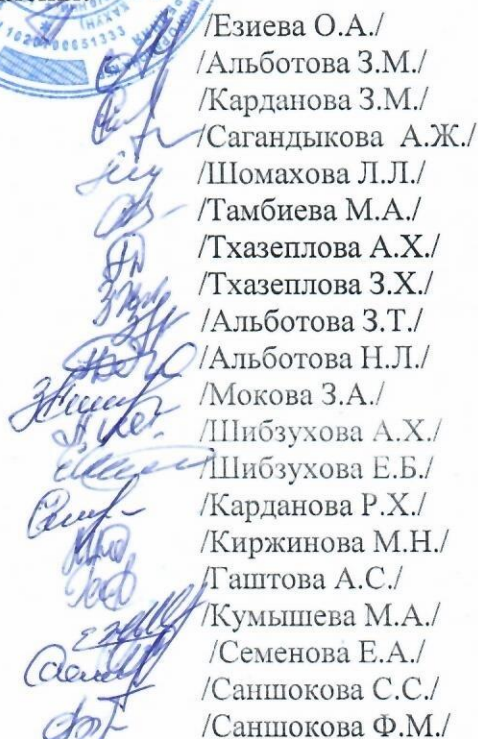 /Езиева О.А./
/Альботова З.М./
/Карданова З.М./
/Сагандыкова А.Ж./
/Шомахова Л.Л./
/Тамбиева М.А./
/Тхазеплова А.Х./
/Тхазеплова З.Х./
/Альботова З.Т./
/Альботова Н.Л./
/Мокова З.А./
/Шибзухова А.Х./
/Шибзухова Е.Б./
/Карданова Р.Х./
/Киржинова М.Н./
/Гаштова А.С./
/Кумышева М.А./
/Семенова Е.А./
/Саншокова С.С./
/Саншокова Ф.М./